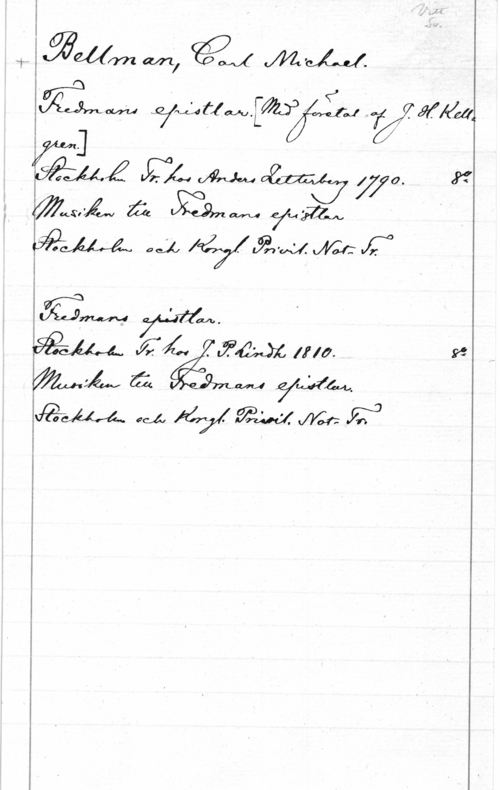 Vitt
Sv.
Bellman, Carl Michael.
Fredmans epistlar. [Med företal af J. H. Kell-
gren.]
Stockholm Tr. hos Anders Zetterberg 1790. 8º
Musiken till Fredmans epistlar
Stockholm och Kongl. Privil. Not-Tr.
Fredmans epistlar.
Stockholm Tr. hos J. P. Lindh 1810. 8º
Musiken till Fredmans epistlar.
Stockholm och Kongl. Privil. Not-Tr.